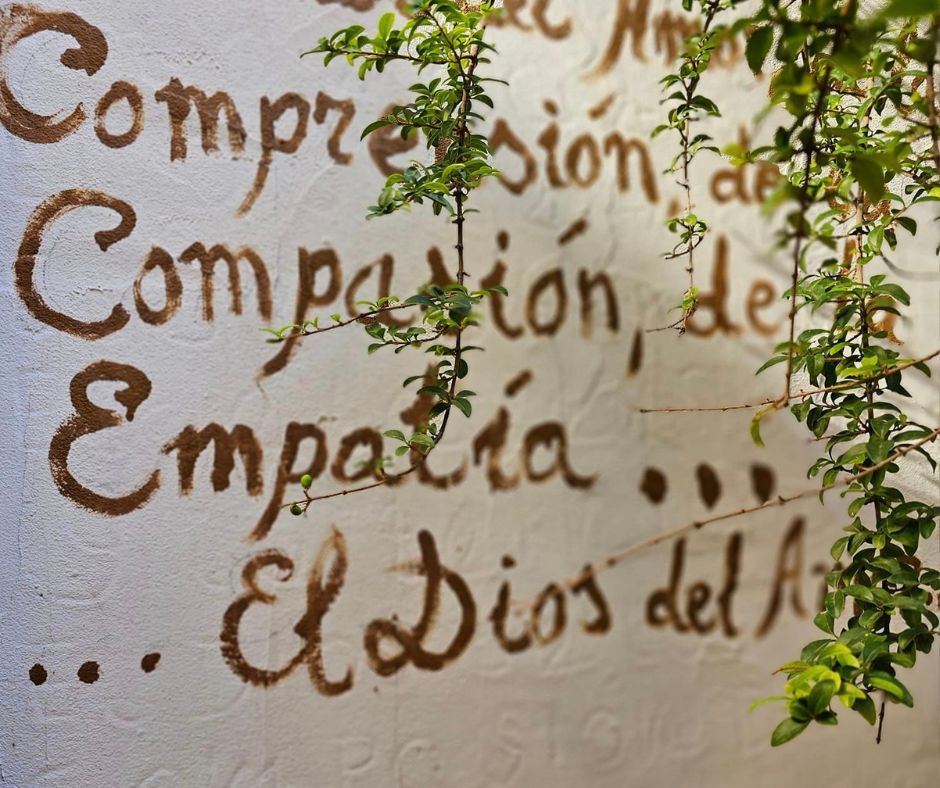 del Amor
Comprensión, de
Compasión, de la
Empatía ...
... El Dios del Am